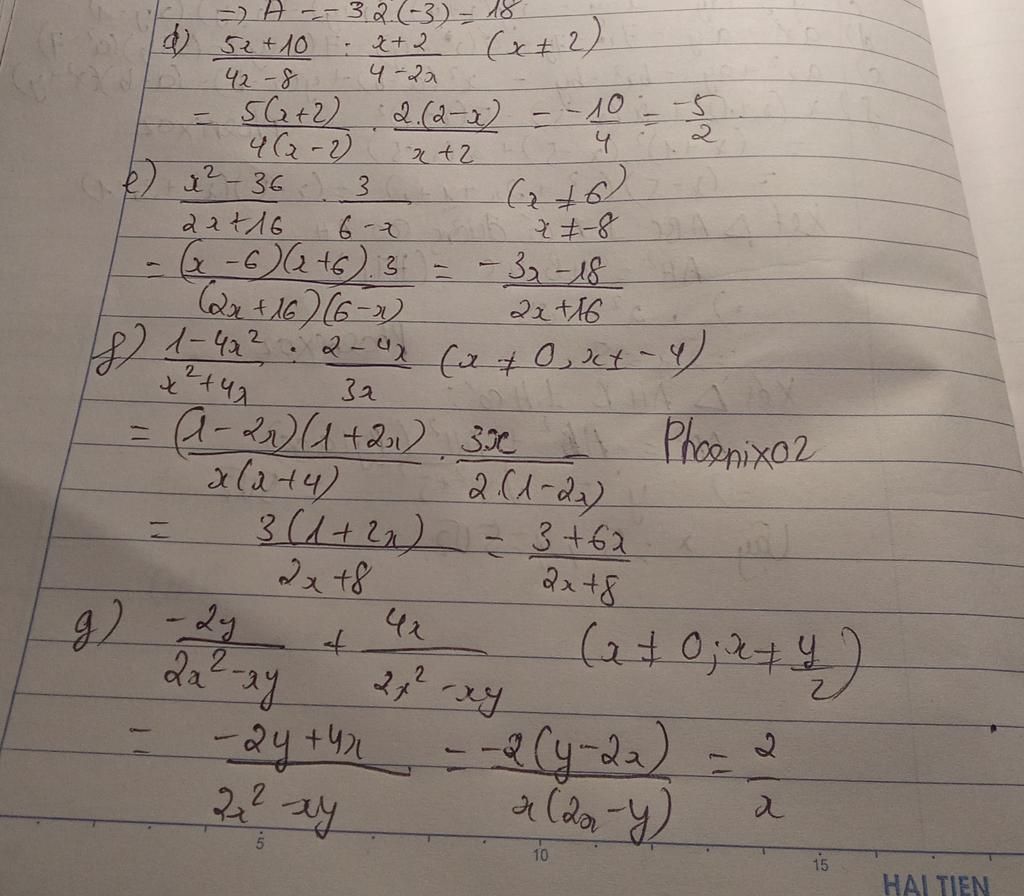 => A = -3.2.(-3) = 18
d) (5x+10)/(4x-8) : (x+2)/(4-2x) (x ≠ 2)
= 5(x+2)/4(x-2) . 2.(2-x)/(x+2) = -10/4 = -5/2
e) (x²-36)/(2x+16) . 3/(6-x) (x ≠ 6) x ≠ -8
= (x-6)(x+6).3/(2x+16)(6-x) = (-3x-18)/(2x+16)
f) (1-4x²)/(x²+4x) : (2-4x)/3x (x ≠ 0, x ≠ -4)
= (1-2x)(1+2x)/x(x+4) . 3x/2.(1-2x) Phoenix02
= 3(1+2x)/(2x+8) = (3+6x)/(2x+8)
g) -2y/(2x²-xy) + 4x/(2x²-xy) (x ≠ 0; x ≠ y/2)
= (-2y+4x)/(2x²-xy) = -2(y-2x)/x(2x-y) = 2/x
5 10 15
HẢI TIẾN